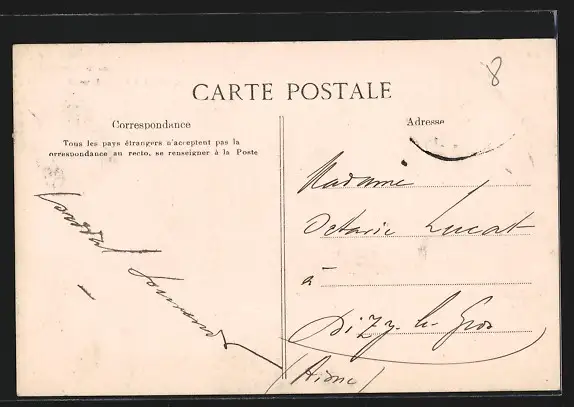 8
CARTE POSTALE
Correspondance
Tous les pays étrangers n'acceptent pas la
correspondance au recto, se renseigner à la Poste
Cordial Souvenir
Adresse
Madame
Octavie Lucat
à
Dizy-le-Gros
(Aisne)